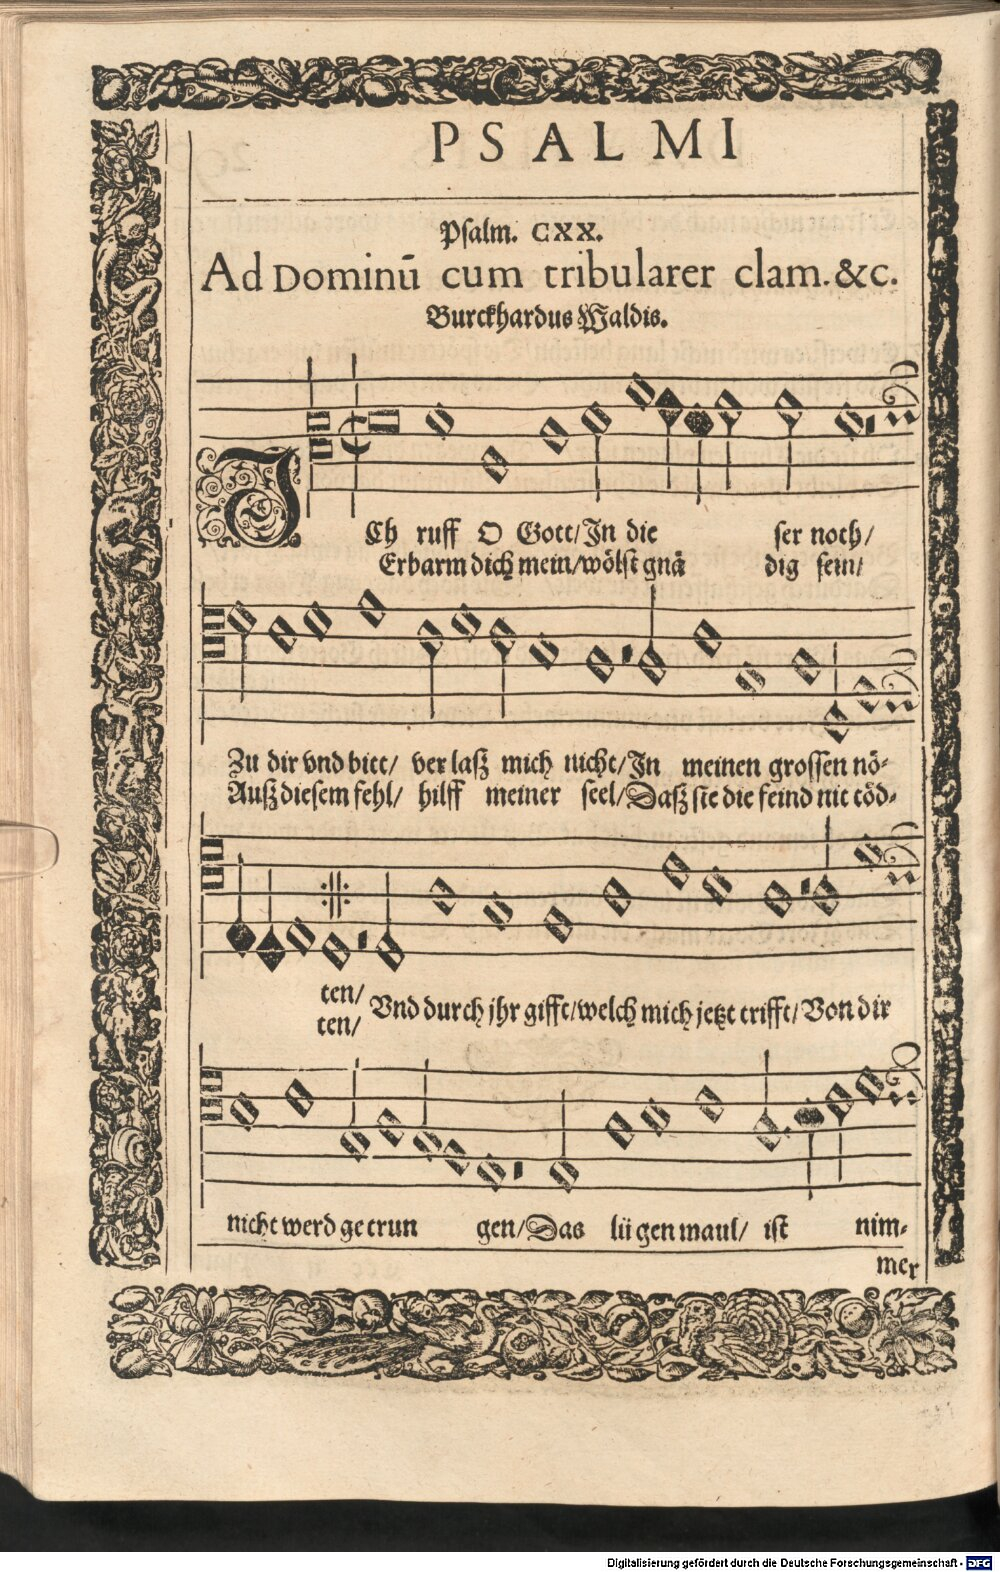 PSALMI
Psalm. CXX.
Ad Dominū cum tribularer clam. &c.
Burckhardus Waldis.
ICh ruff O Gott/ In die ser noth/
Erbarm dich mein/ wölst gnä dig sein/
Zu dir vnd bitt/ verlaß mich nicht/ In meinen grossen nö-
Auß diesem fehl/ hilff meiner seel/ Daß sie die feind nit töd-
ten/
ten/ Vnd durch jhr gifft/ welch mich jetzt trifft/ Von dir
nicht werd getrun gen/ Das lügen maul/ ist nim-
mer
Digitalisierung gefördert durch die Deutsche Forschungsgemeinschaft - DFG